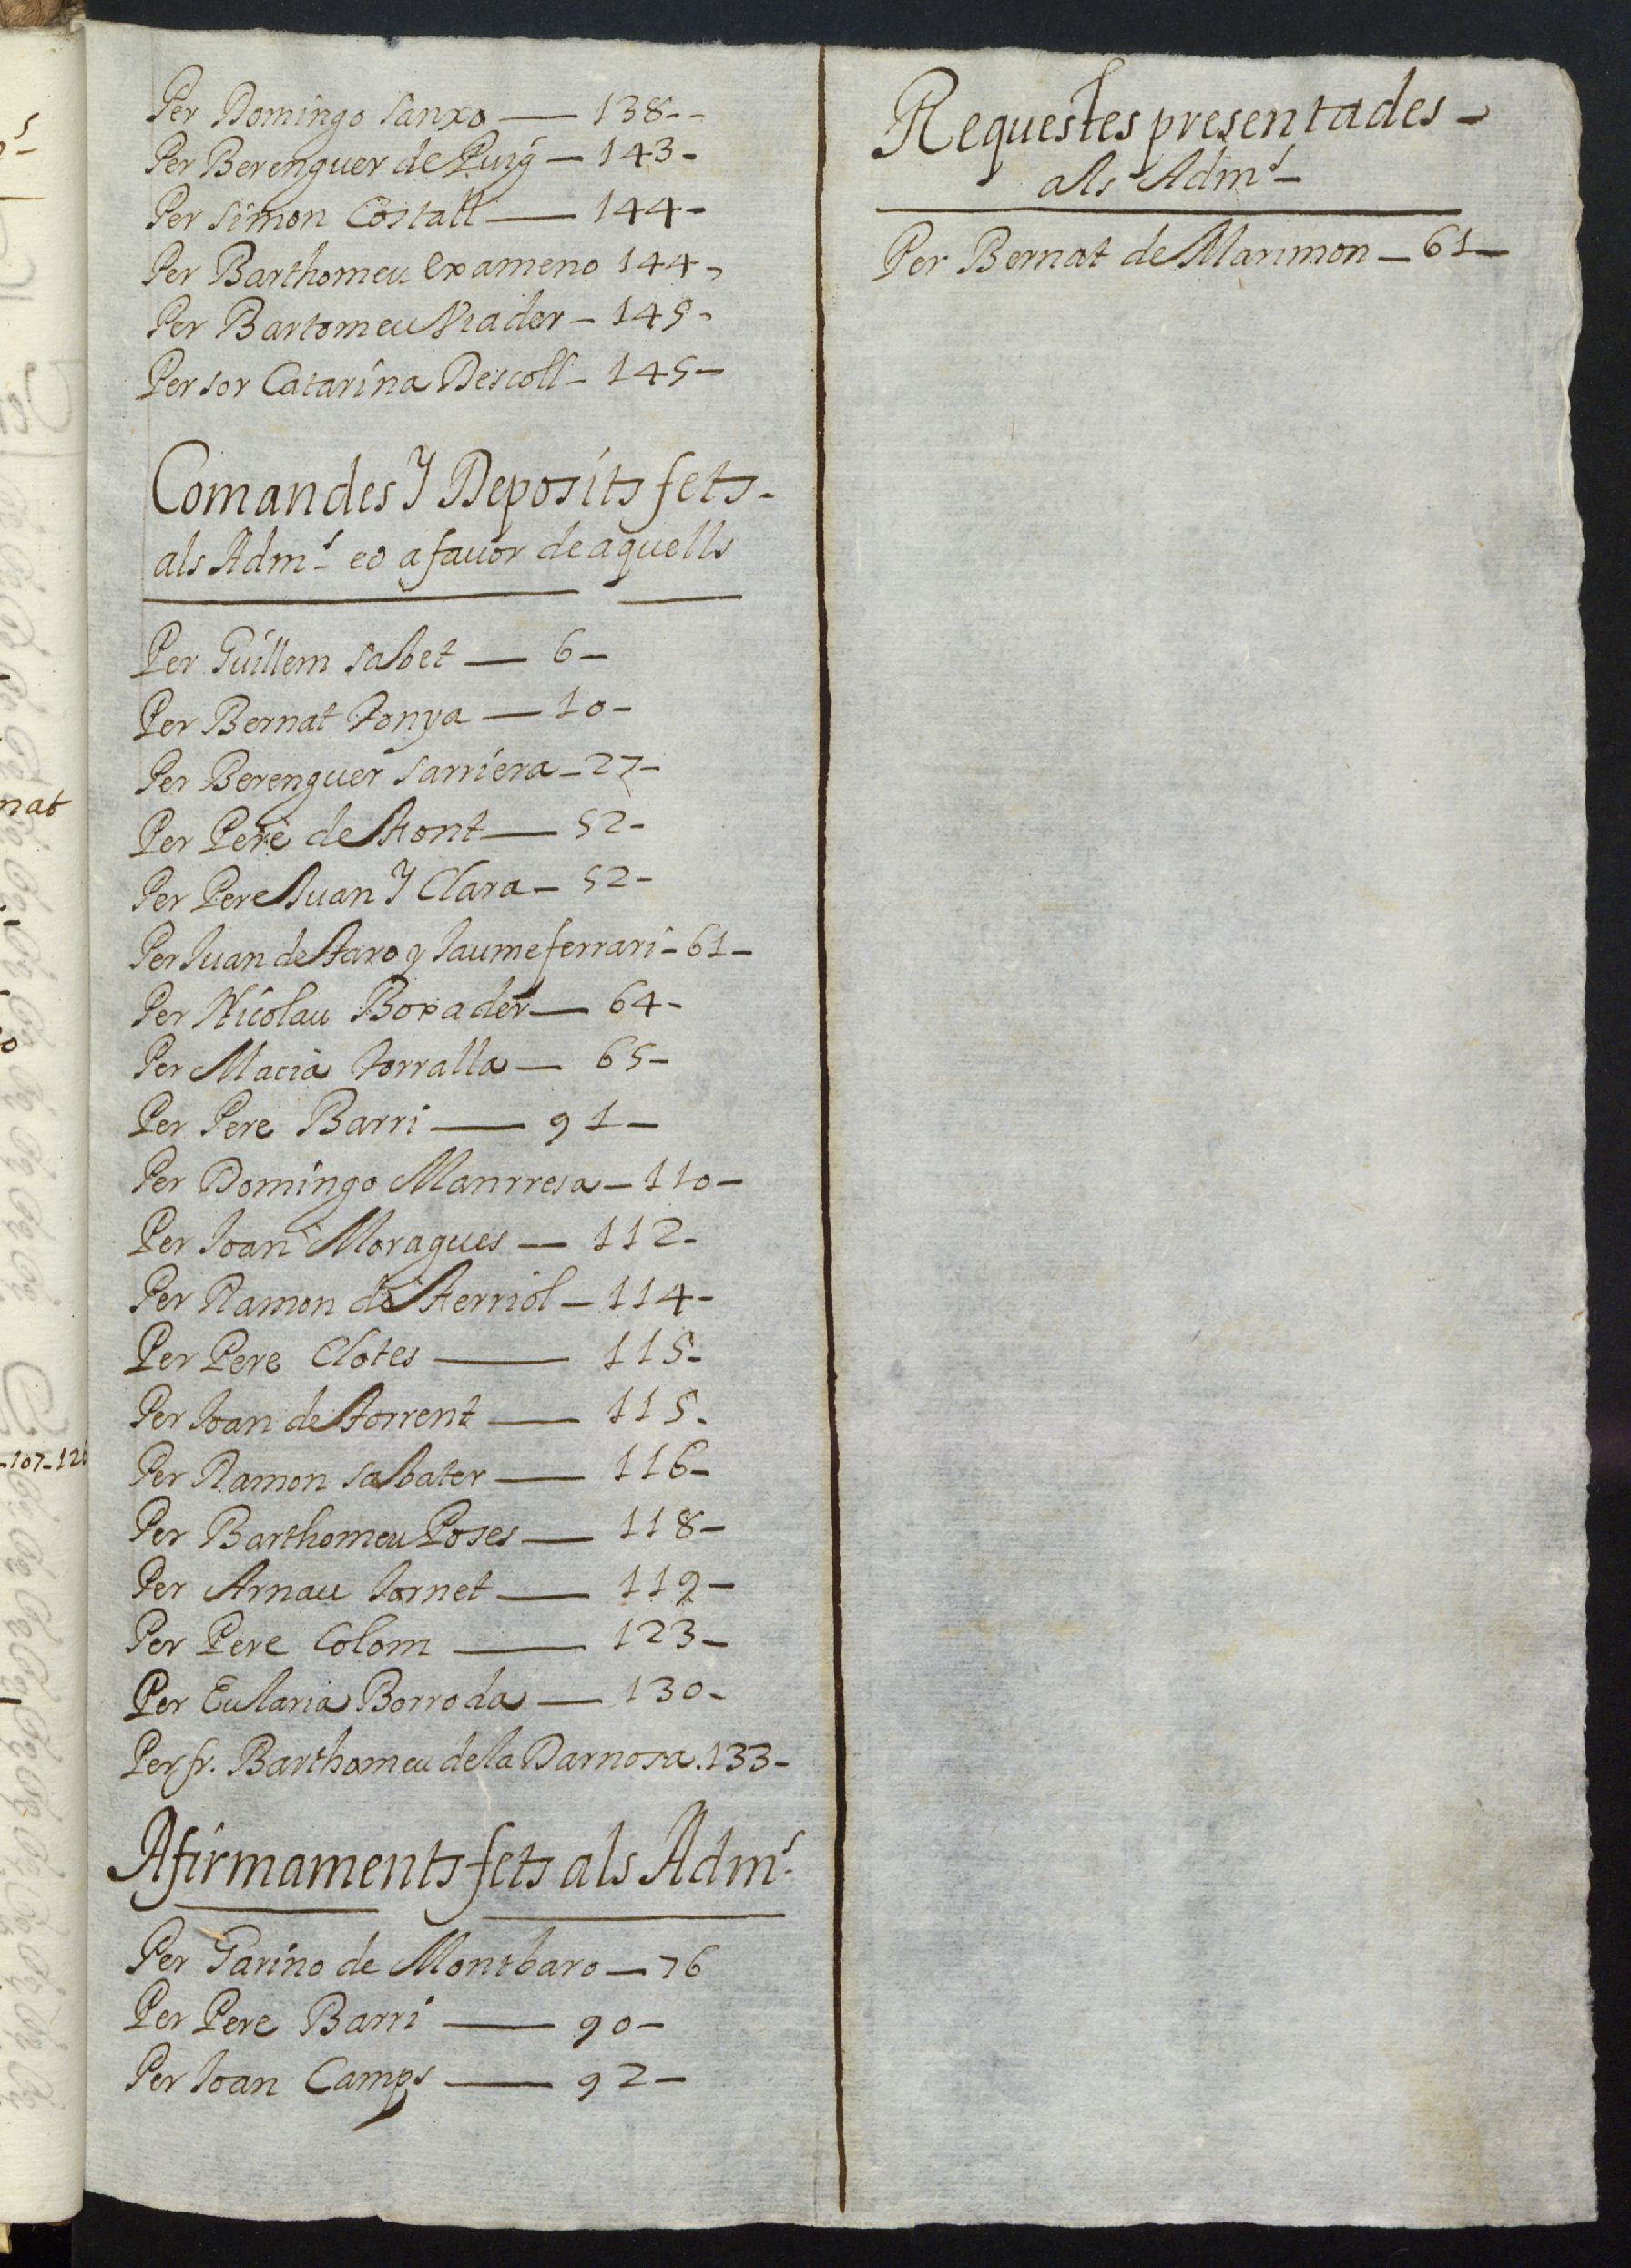 Per Domingo Sanxo — 138 - -
Per Berenguer de Puig — 143 -
Per Simon Costall — 144 -
Per Barthomeu Exameno 144 -
Per Bartomeu Viader — 145 -
Per sor Catarina Descoll - 145 -
Comandes Y Deposits fets -
als Adm.s eo a favor de aquells
Per Guillem Sabet — 6 -
Per Bernat Tonya — 10 -
Per Berenguer Sarriera - 27 -
Per Pere de Font — 52 -
Per Pere Juan Y Clara - 52 -
Per Juan de Haro y Jaume ferrari - 61 -
Per Nicolau Boxader — 64 -
Per Macia Torralla — 65 -
Per Pere Barri — 91 -
Per Domingo Manrresa — 110 -
Per Joan Moragues — 112 -
Per Ramon de Herriol — 114 -
Per Pere Clotes — 115 -
Per Joan de Torrent — 115 -
Per Ramon Sabater — 116 -
Per Barthomeu Poses — 118 -
Per Arnau Jornet — 119 -
Per Pere Colom — 123 -
Per Eularia Borroda — 130 -
Per fr. Barthomeu de la Darnosa. 133 -
Afirmaments fets als Adm.s
Per Garino de Montbaro — 76
Per Pere Barri — 90 -
Per Joan Camps — 92 -
Requestes presentades -
als Adm.s -
Per Bernat de Marimon — 61 -
nat
- 107 - 12